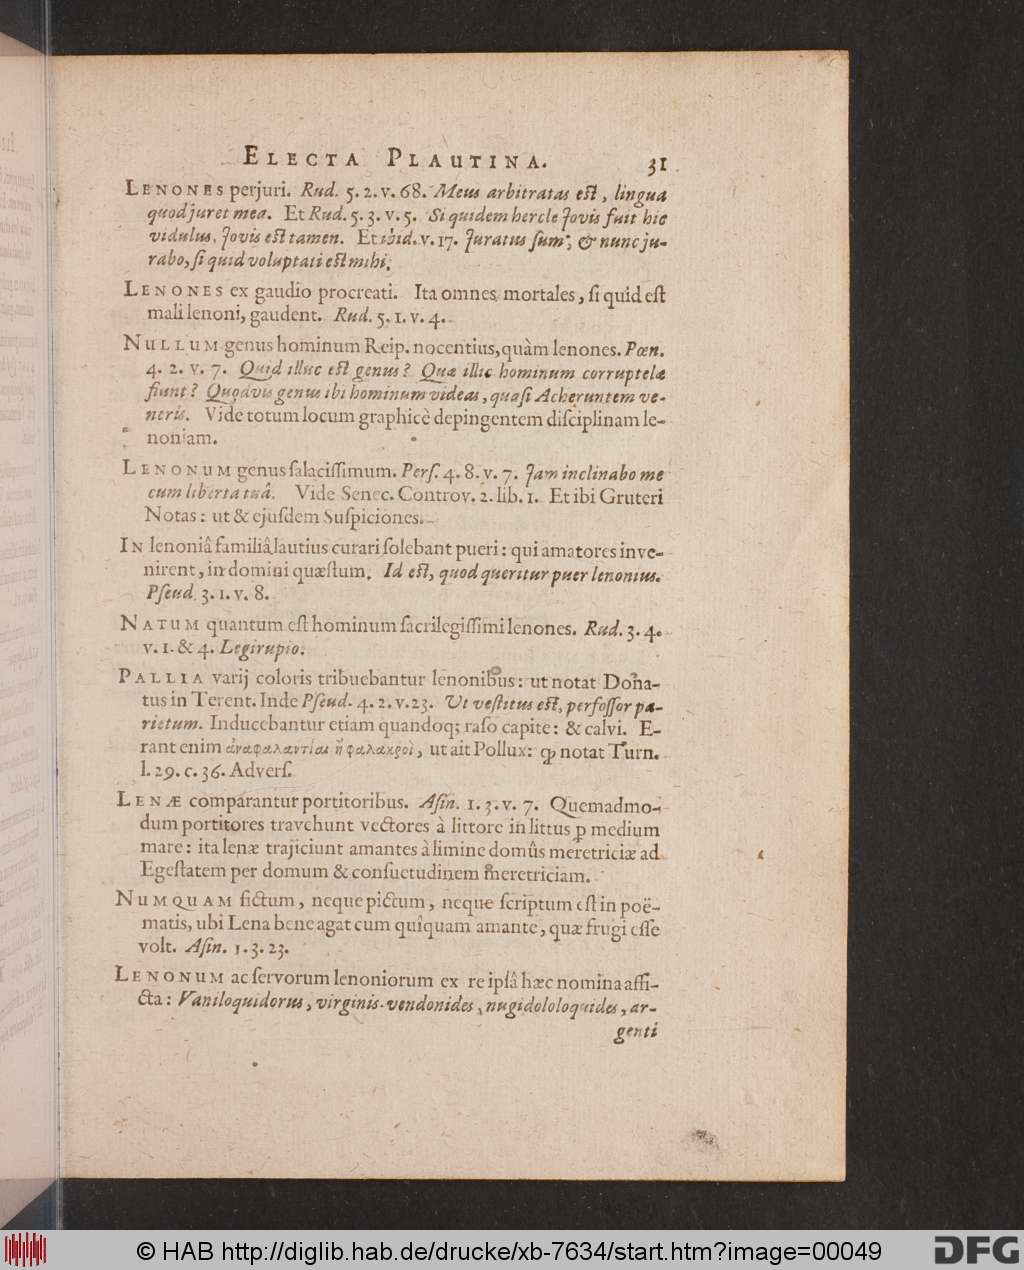 ELECTA PLAUTINA. 31
LENONES perjuri. Rud. 5. 2. v. 68. Meus arbitratus est, lingua
quod juret mea. Et Rud. 5. 3. v. 5. Si quidem hercle Jovis fuit hic
vidulus, Jovis est tamen. Et ibid. v. 17. Juratus sum; & nunc ju-
rabo, si quid voluptati est mihi.
LENONES ex gaudio procreati. Ita omnes mortales, si quid est
mali lenoni, gaudent. Rud. 5. 1. v. 4.
NULLUM genus hominum Reip. nocentius, quàm lenones. Pœn.
4. 2. v. 7. Quid illuc est genus? Quæ illic hominum corruptelæ
fiunt? Quodvis genus ibi hominum videas, quasi Acheruntem ve-
neris. Vide totum locum graphicè depingentem disciplinam le-
noniam.
LENONUM genus salacissimum. Pers. 4. 8. v. 7. Jam inclinabo me
cum liberta tuâ. Vide Senec. Controv. 2. lib. 1. Et ibi Gruteri
Notas: ut & ejusdem Suspiciones.
IN lenoniâ familiâ lautius curari solebant pueri: qui amatores inve-
nirent, in domini quæstum. Id est, quod queritur puer lenonius.
Pseud. 3. 1. v. 8.
NATUM quantum est hominum sacrilegissimi lenones. Rud. 3. 4.
v. 1. & 4. Legirupio.
PALLIA varij coloris tribuebantur lenonibus: ut notat Dona-
tus in Terent. Inde Pseud. 4. 2. v. 23. Ut vestitus est, perfossor pa-
rietum. Inducebantur etiam quandoq; raso capite: & calvi. E-
rant enim ἀναφαλαντίαι ἢ φαλακροὶ, ut ait Pollux: ꝙ notat Turn.
l. 29. c. 36. Advers.
LENÆ comparantur portitoribus. Asin. 1. 3. v. 7. Quemadmo-
dum portitores travehunt vectores à littore in littus ꝑ medium
mare: ita lenæ trajiciunt amantes à limine domûs meretriciæ ad
Egestatem per domum & consuetudinem meretriciam.
NUMQUAM fictum, neque pictum, neque scriptum est in poë-
matis, ubi Lena bene agat cum quîquam amante, quæ frugi esse
volt. Asin. 1. 3. 23.
LENONUM ac servorum lenoniorum ex re ipsâ hæc nomina affi-
cta: Vaniloquidorus, virginis-vendonides, nugidololoquides, ar-
genti
© HAB http://diglib.hab.de/drucke/xb-7634/start.htm?image=00049
DFG